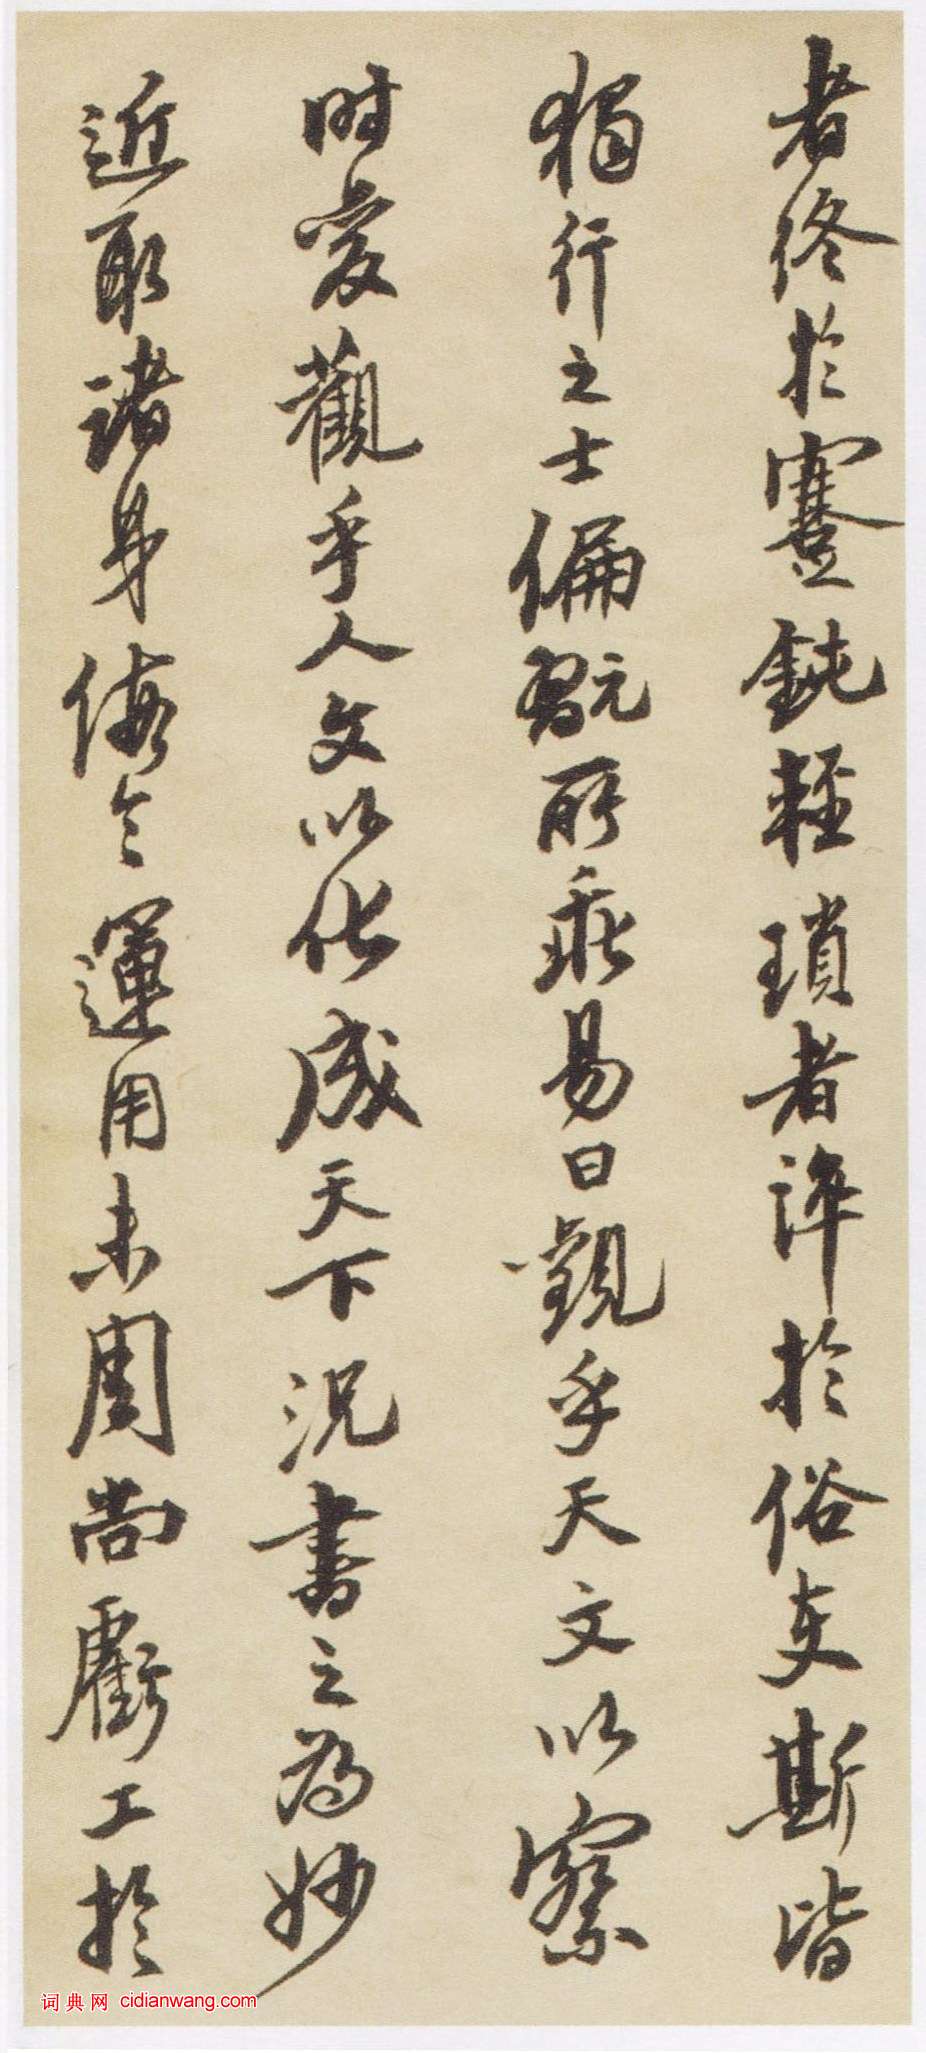 者终於蹇鈍輕瑣者淬於俗吏斯皆
獨行之士偏翫所乖易曰觀乎天文以察
时變觀乎人文以化成天下況書之為妙
近取諸身假令運用未周尚虧工於
词典网 cidianwang.com